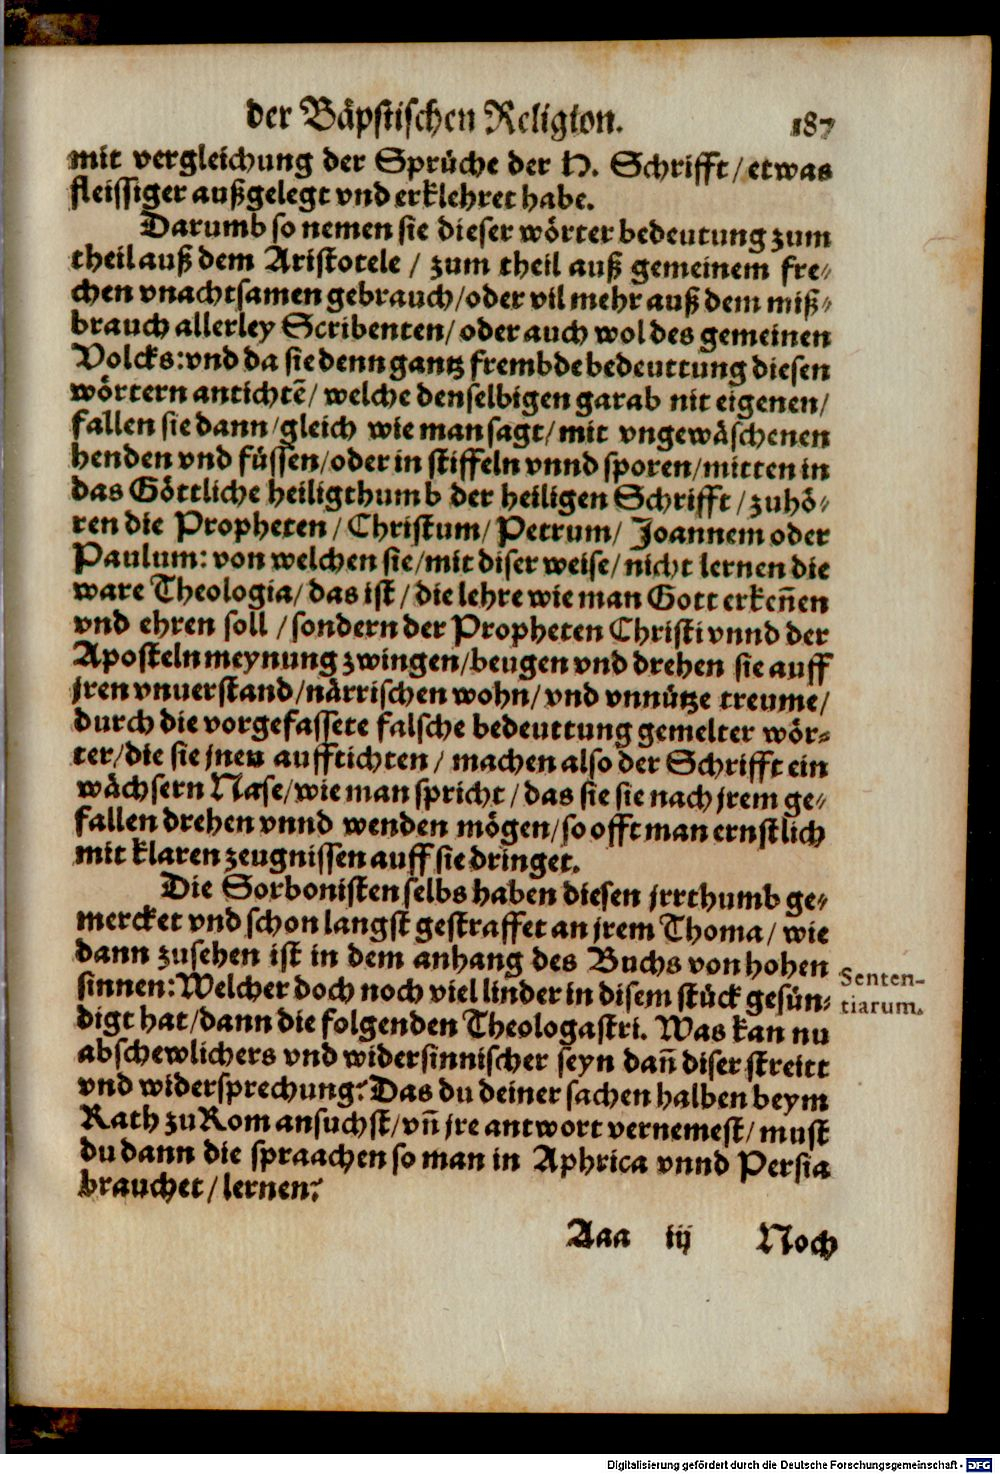 der Bäpstischen Religion. 187
mit vergleichung der Sprüche der H. Schrifft/ etwas
fleissiger außgelegt vnd erklehret habe.
Darumb so nemen sie dieser wörter bedeutung zum
theil auß dem Aristotele / zum theil auß gemeinem fre⸗
chen vnachtsamen gebrauch/oder vil mehr auß dem miß⸗
brauch allerley Scribenten/ oder auch wol des gemeinen
Volcks: vnd da sie denn gantz frembde bedeuttung diesen
wörtern antichtẽ/ welche denselbigen garab nit eigenen/
fallen sie dann/gleich wie man sagt/ mit vngewäschenen
henden vnd füssen/oder in stiffeln vnnd sporen/mitten in
das Göttliche heiligthumb der heiligen Schrifft/ zuhö⸗
ren die Propheten/ Christum/ Petrum/ Joannem oder
Paulum: von welchen sie/mit diser weise/ nicht lernen die
ware Theologia/ das ist / die lehre wie man Gott erkeñen
vnd ehren soll /sondern der Propheten Christi vnnd der
Aposteln meynung zwingen/beugen vnd drehen sie auff
jren vnuerstand/närrischen wohn/ vnd vnnütze treume/
durch die vorgefassete falsche bedeuttung gemelter wör⸗
ter/die sie jnen aufftichten / machen also der Schrifft ein
wächsern Nase/wie man spricht / das sie sie nach jrem ge⸗
fallen drehen vnnd wenden mögen/so offt man ernstlich
mit klaren zeugnissen auff sie dringet.
Die Sorbonisten selbs haben diesen jrrthumb ge⸗
mercket vnd schon langst gestraffet an jrem Thoma/ wie
dann zusehen ist in dem anhang des Buchs von hohen
sinnen: Welcher doch noch viel linder in disem stück gesün⸗
digt hat/dann die folgenden Theologastri. Was kan nu
abschewlichers vnd widersinnischer seyn dañ diser streitt
vnd widersprechung? Das du deiner sachen halben beym
Rath zu Rom ansuchst/ vñ jre antwort vernemest/ must
du dann die spraachen so man in Aphrica vnnd Persia
brauchet/ lernen?
Senten-
tiarum.
Aaa iij Noch
Digitalisierung gefördert durch die Deutsche Forschungsgemeinschaft - DFG